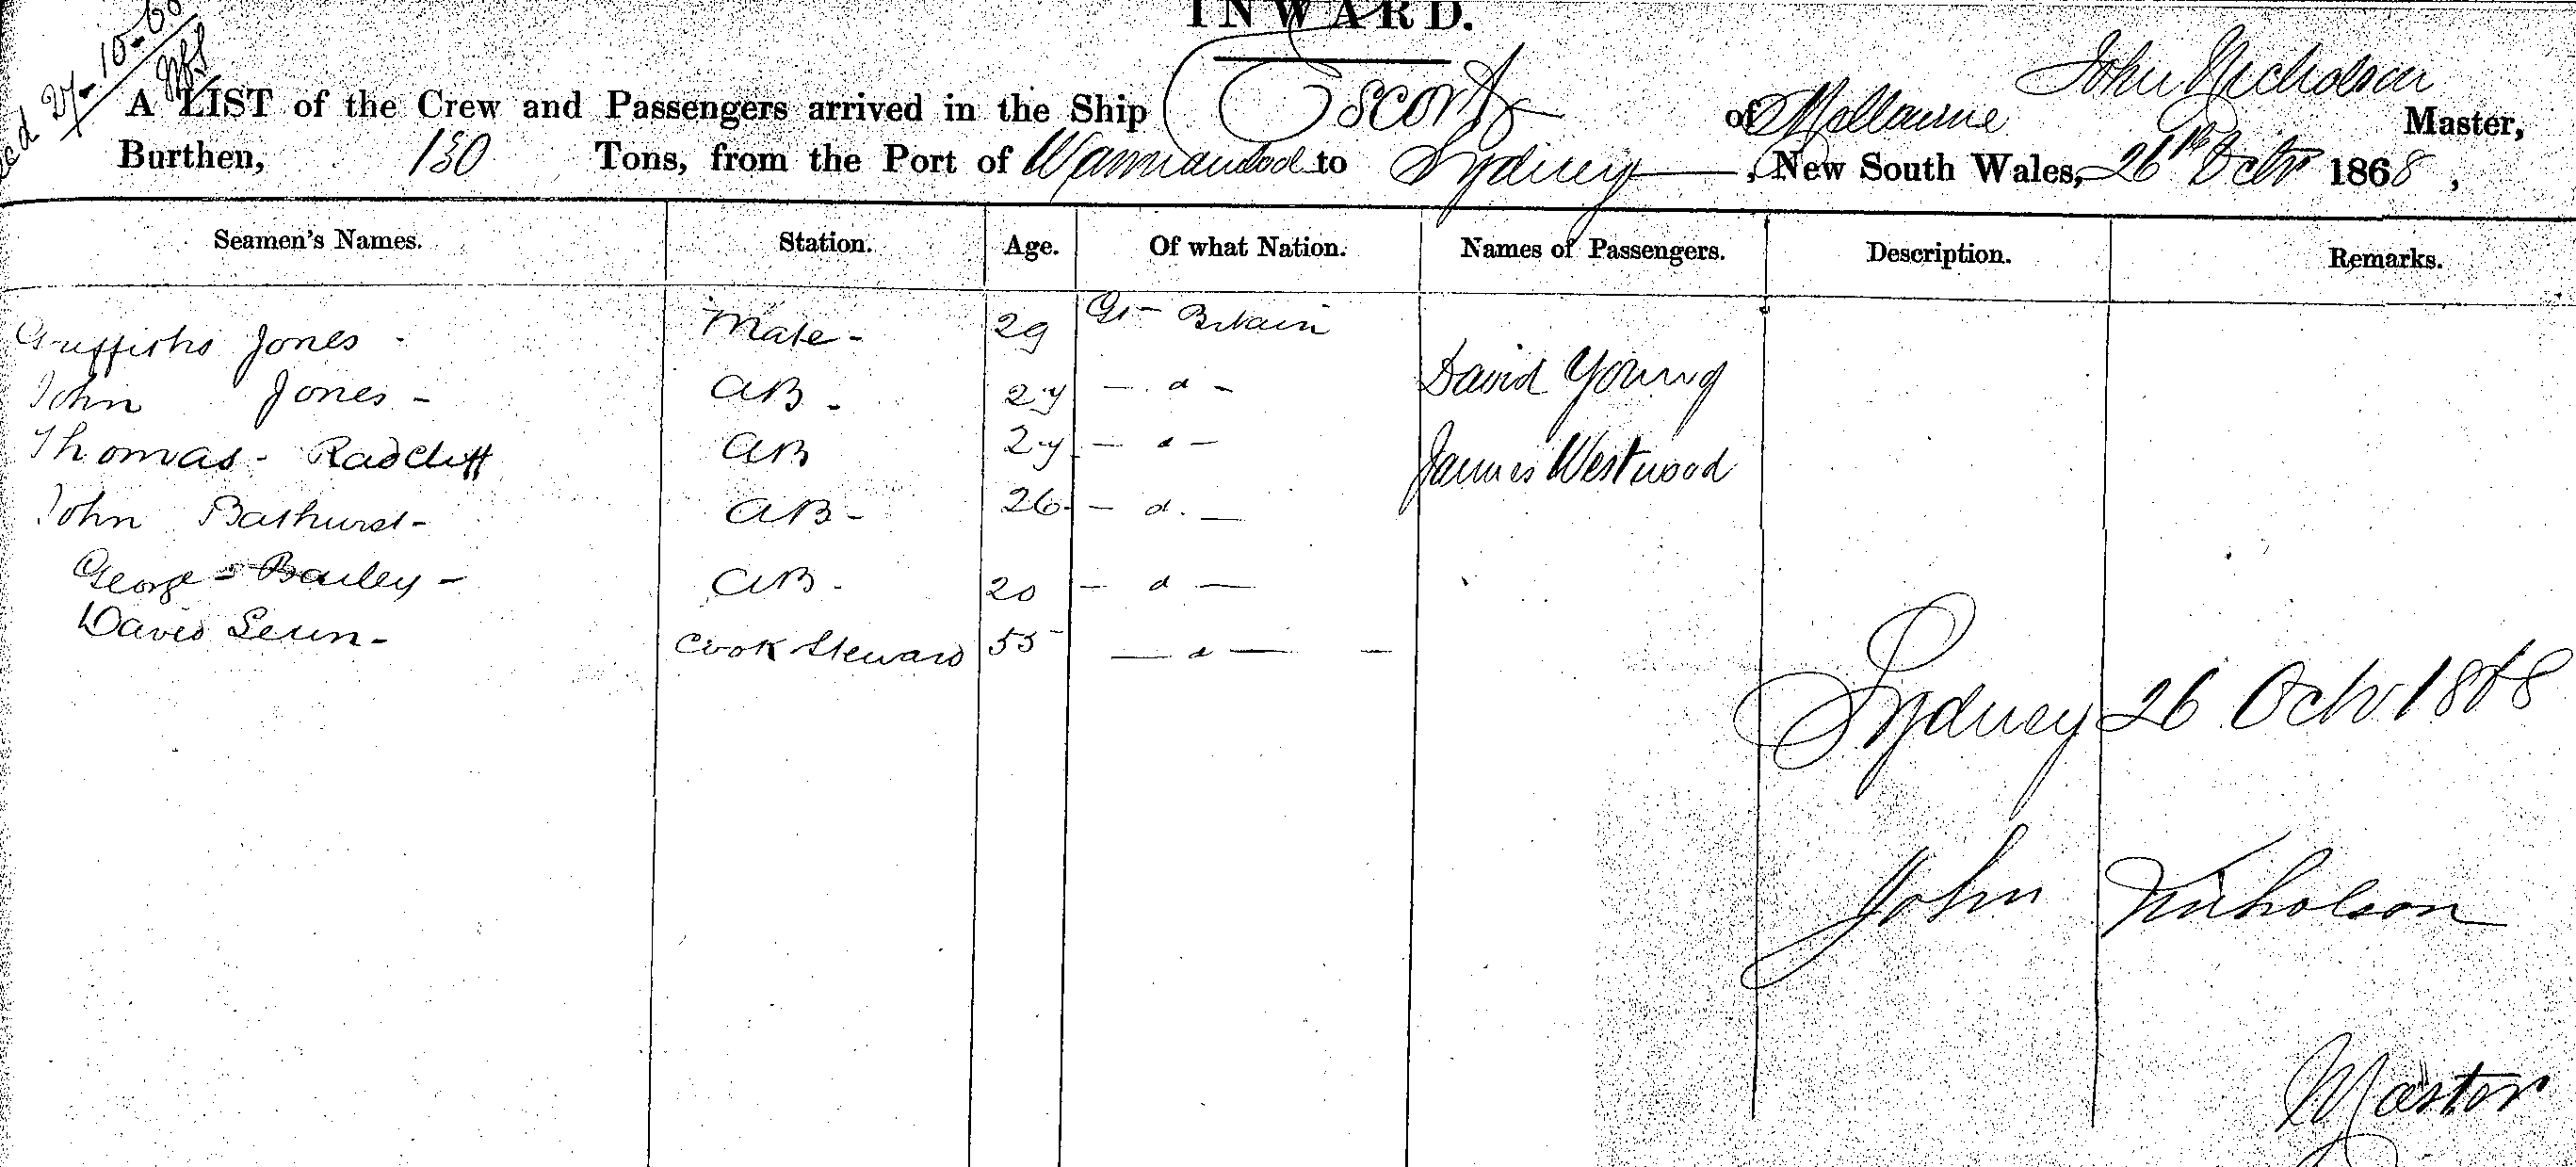 INWARD.
27-10-68
A LIST of the Crew and Passengers arrived in the Ship Escort of Melbourne John Nicholson Master,
Burthen, 130 Tons, from the Port of to Sydney, New South Wales, 26th Octr 1868,
Seamen's Names. Station. Age. Of what Nation. Names of Passengers. Description. Remarks.
Griffiths Jones - Mate - 29 Gt Britain
John Jones - AB - 27 - d - David Young
Thomas - Radcliff AB 27 - d - James Westwood
John Bathurst - AB - 26 - d. -
George - Bailey - AB - 20 - d -
David - Cook Steward 55 - d - -
Sydney 26 Octr 1868
John Nicholson
Master